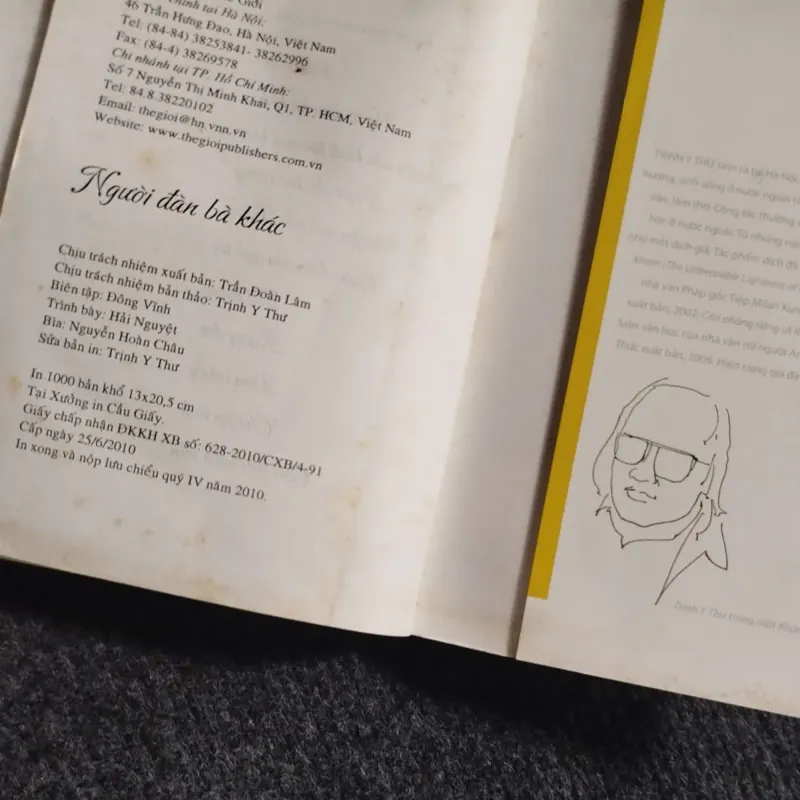 Giới
Chính tại Hà Nội:
46 Trần Hưng Đạo, Hà Nội, Việt Nam
Tel: (84-84) 38253841- 38262996
Fax: (84-4) 38269578
Chi nhánh tại TP. Hồ Chí Minh:
Số 7 Nguyễn Thị Minh Khai, Q1, TP. HCM, Việt Nam
Tel: 84.8.38220102
Email: thegioi@hn.vnn.vn
Website: www.thegioipublishers.com.vn
Người đàn bà khác
Chịu trách nhiệm xuất bản: Trần Đoàn Lâm
Chịu trách nhiệm bản thảo: Trịnh Y Thư
Biên tập: Đông Vĩnh
Trình bày: Hải Nguyệt
Bìa: Nguyễn Hoàn Châu
Sửa bản in: Trịnh Y Thư
In 1000 bản khổ 13x20,5 cm
Tại Xưởng in Cầu Giấy.
Giấy chấp nhận ĐKKH XB số: 628-2010/CXB/4-91
Cấp ngày 25/6/2010
In xong và nộp lưu chiểu quý IV năm 2010.
TRỊNH Y THƯ sinh ra tại Hà Nội,
hương, sinh sống ở nước ngoài
văn, làm thơ. Cộng tác thường
học ở nước ngoài. Từ những
như một dịch giả. Tác phẩm dịch đã
(The Unbearable Lightness of
nhà văn Pháp gốc Tiệp Milan
xuất bản, 2002; Căn phòng riêng
luận văn học của nhà văn nữ người
Thức xuất bản, 2009. Hiện cùng gia
Trịnh Y Thư trong mắt